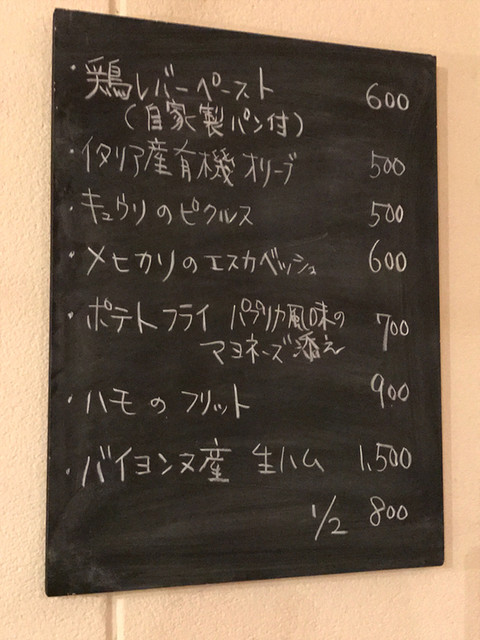 ・鶏レバーペースト 600
(自家製パン付)
・イタリア産有機オリーブ 500
・キュウリのピクルス 500
・メヒカリのエスカベッシュ 600
・ポテトフライ パプリカ風味の 700
マヨネーズ添え
・ハモのフリット 900
・バイヨンヌ産 生ハム 1,500
1/2 800